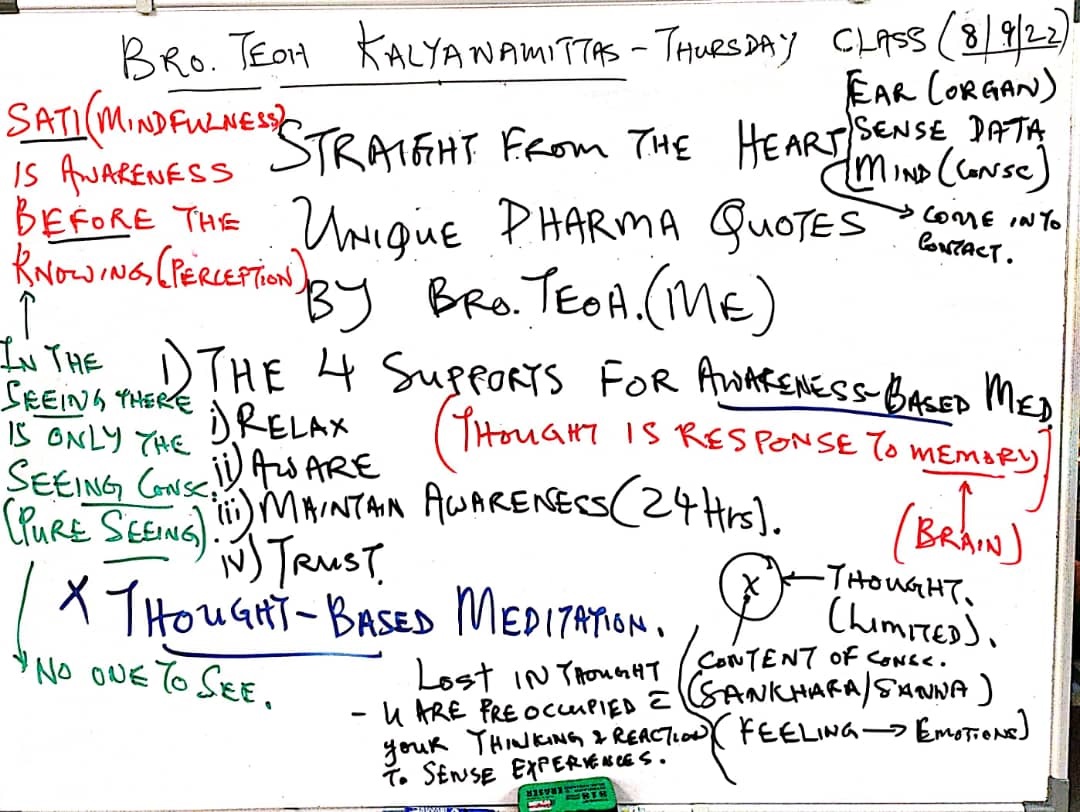 BRO. TEOH KALYANAMITTAS - THURSDAY CLASS (8/9/22)
SATI (MINDFULNESS)
IS AWARENESS
BEFORE THE
KNOWING (PERCEPTION)
↑
IN THE
SEEING THERE
IS ONLY THE
SEEING CONSC.
(PURE SEEING).
NO ONE TO SEE.
STRAIGHT FROM THE HEART
UNIQUE DHARMA QUOTES
BY BRO. TEOH. (ME)
EAR (ORGAN)
SENSE DATA
MIND (CONSC)
→ COME INTO
CONTACT.
1) THE 4 SUPPORTS FOR AWARENESS-BASED MED
i) RELAX
ii) AWARE
iii) MAINTAIN AWARENESS (24 Hrs).
iv) TRUST.
(THOUGHT IS RESPONSE TO MEMORY)
↑
(BRAIN)
X THOUGHT-BASED MEDITATION.
X ← THOUGHT.
(LIMITED).
CONTENT OF CONSC.
(SANKHARA/SANNA)
(FEELING → EMOTIONS)
LOST IN THOUGHT
- U ARE PREOCCUPIED
YOUR THINKING & REACTION
TO SENSE EXPERIENCES.